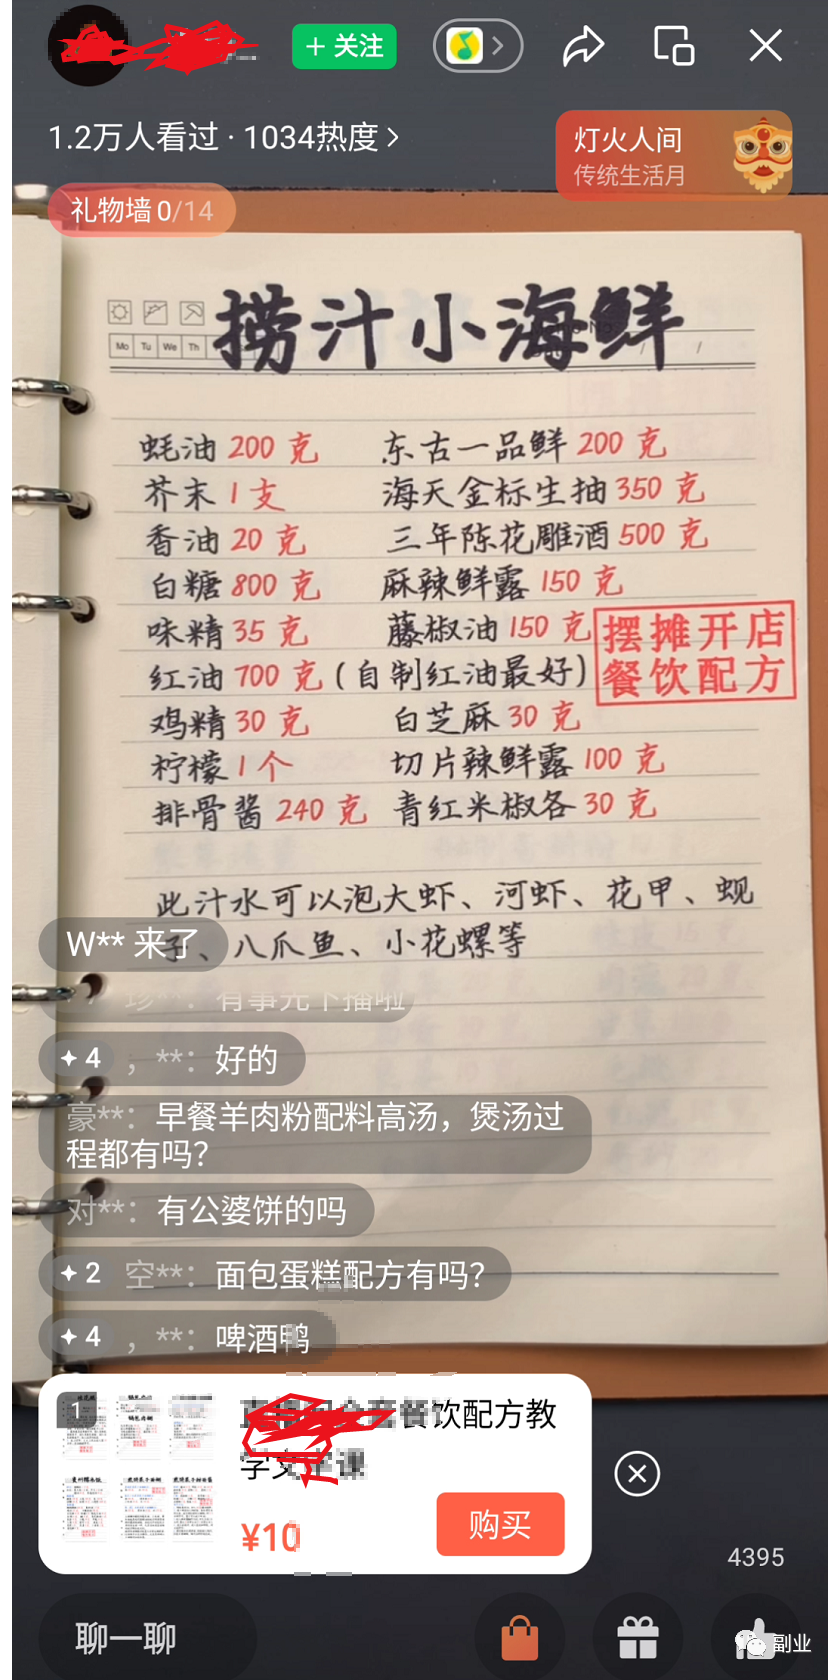 + 关注
1.2万人看过 · 1034热度 >
灯火人间
传统生活月
礼物墙 0/14
捞汁小海鲜
Mo Tu We Th
蚝油 200 克 东古一品鲜 200 克
芥末 1 支 海天金标生抽 350 克
香油 20 克 三年陈花雕酒 500 克
白糖 800 克 麻辣鲜露 150 克
味精 35 克 藤椒油 150 克
摆摊开店
餐饮配方
红油 700 克 (自制红油最好)
鸡精 30 克 白芝麻 30 克
柠檬 1 个 切片辣鲜露 100 克
排骨酱 240 克 青红米椒各 30 克
此汁水可以泡大虾、河虾、花甲、蚬
子、八爪鱼、小花螺等
W** 来了
珍**：有事先下播啦
4 ，**：好的
豪**：早餐羊肉粉配料高汤，煲汤过
程都有吗？
对**：有公婆饼的吗
2 空**：面包蛋糕配方有吗？
4 ，**：啤酒鸭
1
餐饮配方教
学
课
¥10
购买
4395
聊一聊
副业